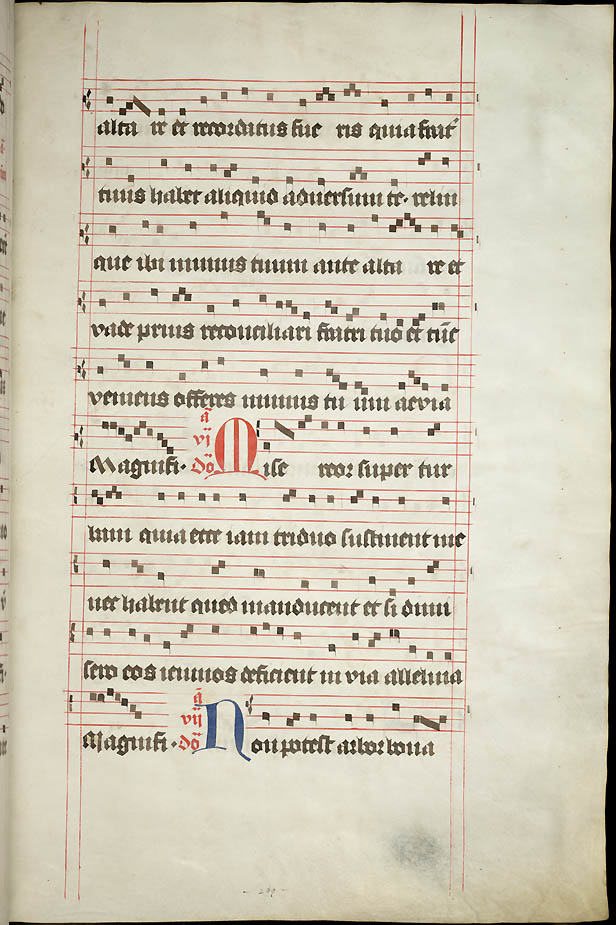 alta re et recordatus fue ris quia frat᷑
tuus habet aliquid aduersum te· relin
que ibi munus tuum ante alta re et
vade prius reconciliari fratri tuo et tūc
veniens offeres munus tu um aevia
Magnifi· dō vi a᷑ Mise reor super tur
bam quia ecce iam triduo sustinent me
nec habent quod manducent et si dimi
sero eos ieiunos deficient in via alleluia
Magnifi· dō vii a᷑ Non potest arbor bona